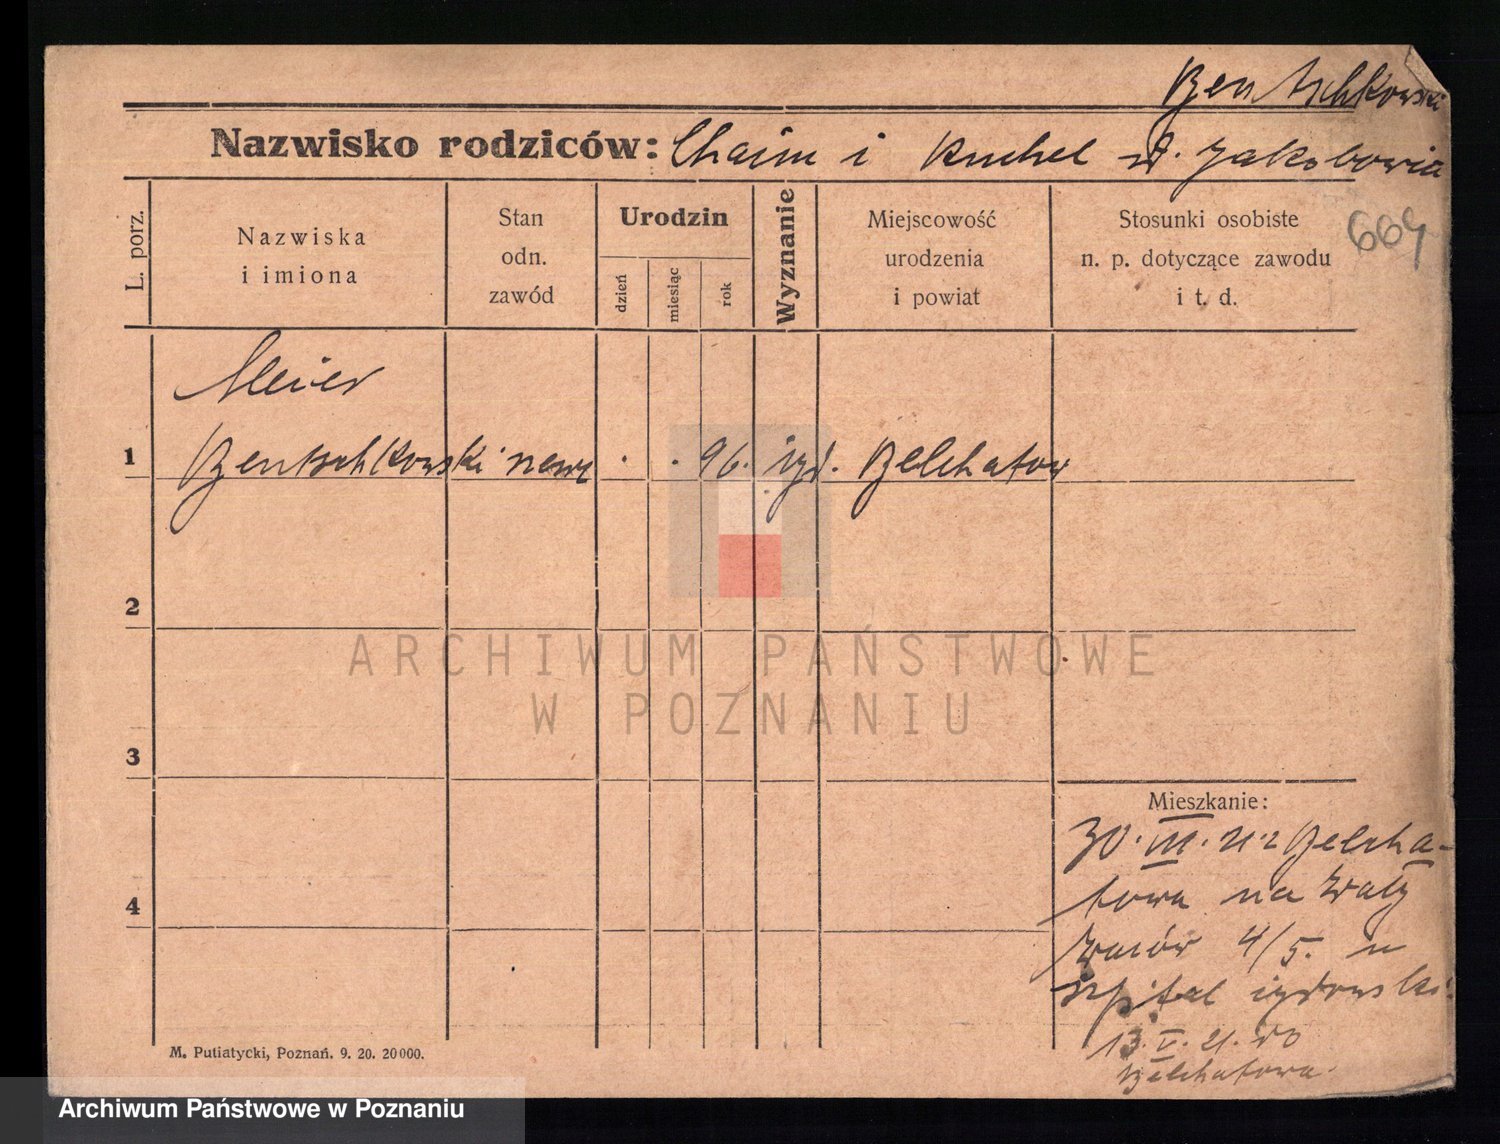 Bentschkowski
Nazwisko rodziców: Chaim i Ruchel z d. Jakobowicz
664
L. porz.
Nazwiska i imiona
Stan odn. zawód
Urodzin
dzień
miesiąc
rok
Wyznanie
Miejscowość urodzenia i powiat
Stosunki osobiste n. p. dotyczące zawodu i t. d.
Meier
1 Bentschkowski . . 96. żyd. Belchatow
2
3
4
Mieszkanie:
30. III. 21. z Belcha-
towa na Wały
4/5. u
szpital żydowski
13. V. 21. do
Belchatowa.
M. Putiatycki, Poznań. 9. 20. 20000.
ARCHIWUM PAŃSTWOWE
W POZNANIU
Archiwum Państwowe w Poznaniu